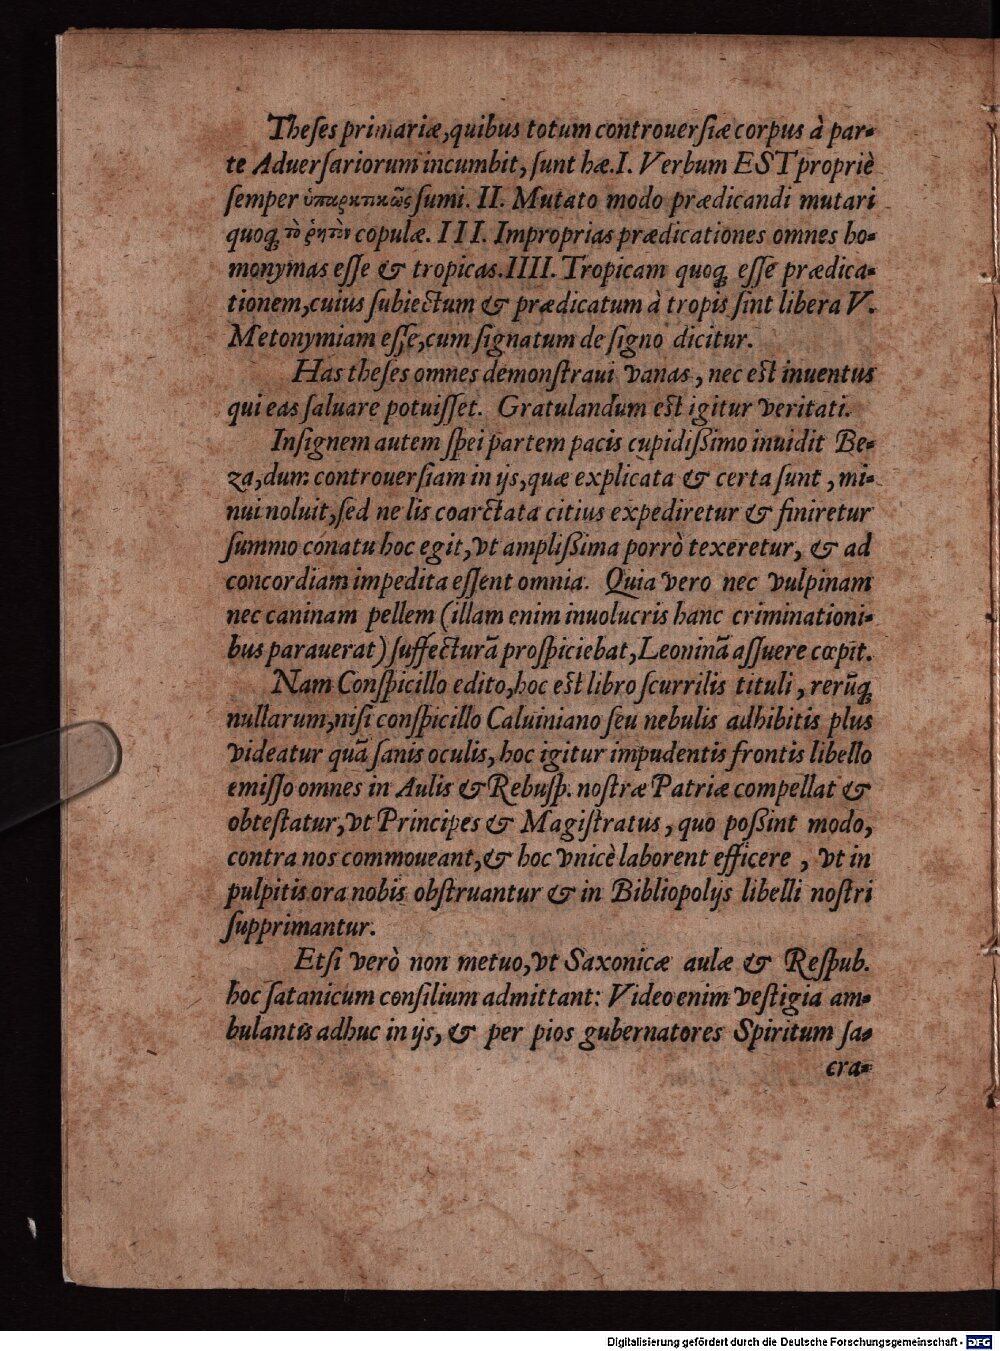 Theſes primariæ, quibus totum controuerſiæ corpus à par-
te Aduerſariorum incumbit, ſunt hæ. I. Verbum EST propriè
ſemper ὑπαρκτικῶς ſumi. II. Mutato modo prædicandi mutari
quoq; τὸ ῥητὸν copulæ. III. Improprias prædicationes omnes ho-
monymas eſſe & tropicas. IIII. Tropicam quoq; eſſe prædica-
tionem, cuius ſubiectum & prædicatum à tropis ſint libera V.
Metonymiam eſſe, cum ſignatum de ſigno dicitur.
Has theſes omnes demonſtraui vanas, nec eſt inuentus
qui eas ſaluare potuiſſet. Gratulandum eſt igitur veritati.
Inſignem autem ſpei partem pacis cupidißimo inuidit Be-
za, dum controuerſiam in ijs, quæ explicata & certa ſunt, mi-
nui noluit, ſed ne lis coarctata citius expediretur & finiretur
ſummo conatu hoc egit, vt amplißima porrò texeretur, & ad
concordiam impedita eſſent omnia. Quia vero nec vulpinam
nec caninam pellem (illam enim inuolucris hanc criminationi-
bus parauerat) ſuffecturā proſpiciebat, Leoninā aſſuere cœpit.
Nam Conſpicillo edito, hoc eſt libro ſcurrilis tituli, rerūq;
nullarum, niſi conſpicillo Caluiniano ſeu nebulis adhibitis plus
videatur quā ſanis oculis, hoc igitur impudentis frontis libello
emiſſo omnes in Aulis & Rebuſp. noſtræ Patriæ compellat &
obteſtatur, vt Principes & Magiſtratus, quo poßint modo,
contra nos commoueant, & hoc vnicè laborent efficere, vt in
pulpitis ora nobis obſtruantur & in Bibliopolijs libelli noſtri
ſupprimantur.
Etſi verò non metuo, vt Saxonicæ aulæ & Reſpub.
hoc ſatanicum conſilium admittant: Video enim veſtigia am-
bulantis adhuc in ijs, & per pios gubernatores Spiritum ſa-
cra-
Digitalisierung gefördert durch die Deutsche Forschungsgemeinschaft - DFG